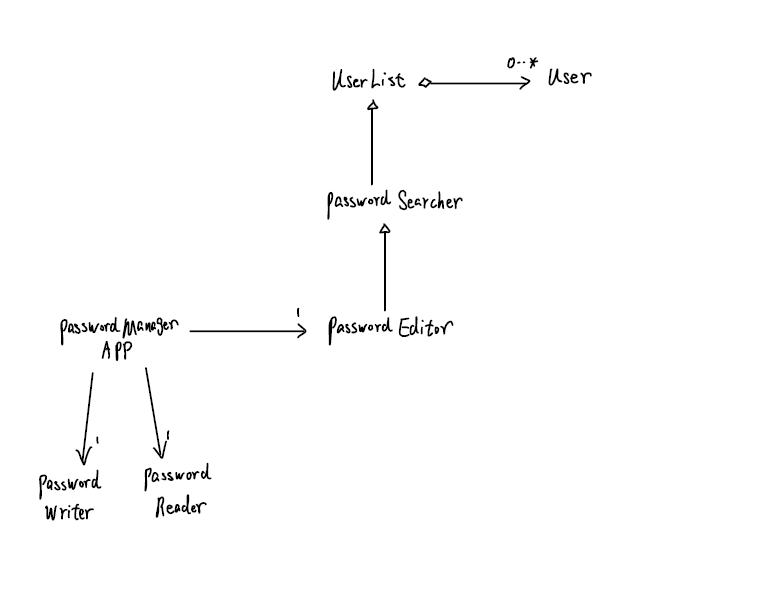 0..*
UserList
User
Password Searcher
1
Password Manager
APP
Password Editor
1
1
Password
Writer
Password
Reader